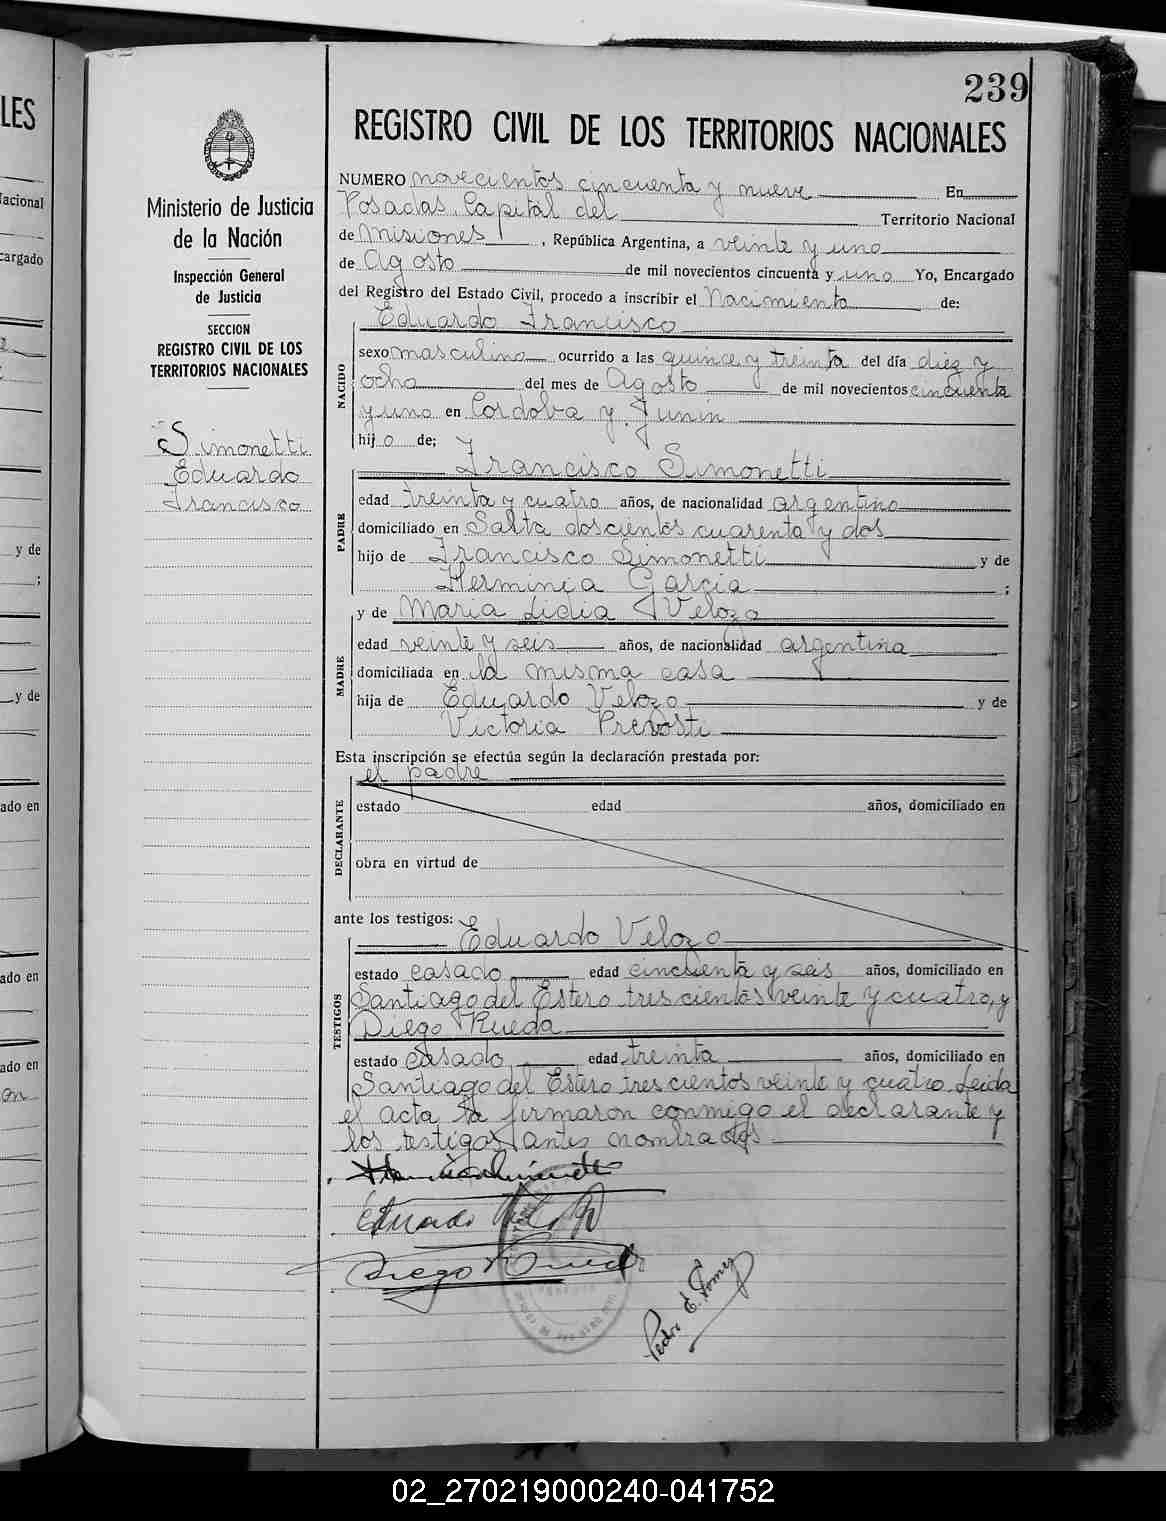 239
REGISTRO CIVIL DE LOS TERRITORIOS NACIONALES
LES
Ministerio de Justicia
de la Nación
Inspección General
de Justicia
SECCION
REGISTRO CIVIL DE LOS
TERRITORIOS NACIONALES
Simonetti
Eduardo
Francisco
NUMERO novecientos cincuenta y nueve En
Posadas, Capital del Territorio Nacional
de Misiones, República Argentina, a veinte y uno
de Agosto de mil novecientos cincuenta y uno Yo, Encargado
del Registro del Estado Civil, procedo a inscribir el Nacimiento de:
Eduardo Francisco
NACIDO
sexo masculino ocurrido a las quince y treinta del día diez y
ocho del mes de Agosto de mil novecientos cincuenta
y uno en Cordoba y Junin
hijo de;
Francisco Simonetti
PADRE
edad treinta y cuatro años, de nacionalidad argentino
domiciliado en Salta doscientos cuarenta y dos
hijo de Francisco Simonetti y de
Herminia Garcia ;
y de Maria Lidia Velozo
MADRE
edad veinte y seis años, de nacionalidad argentina
domiciliada en la misma casa
hija de Eduardo Velozo y de
Victoria Prevosti
Esta inscripción se efectúa según la declaración prestada por:
el padre
DECLARANTE
estado edad años, domiciliado en
obra en virtud de
ante los testigos:
Eduardo Velozo
TESTIGOS
estado casado edad cincuenta y seis años, domiciliado en
Santiago del Estero trescientos veinte y cuatro, y
Diego Rueda
estado casado edad treinta años, domiciliado en
Santiago del Estero trescientos veinte y cuatro. Leida
el acta la firmaron conmigo el declarante y
los testigos antes nombrados
Pedro E. Gomez
acional
cargado
y de
;
y de
ado en
ado en
ado en
02_270219000240-041752